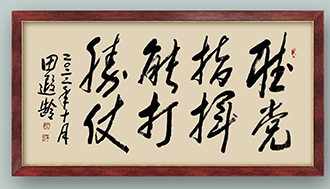 听党
指挥
能打
胜仗
二〇一三年十月
田遐龄